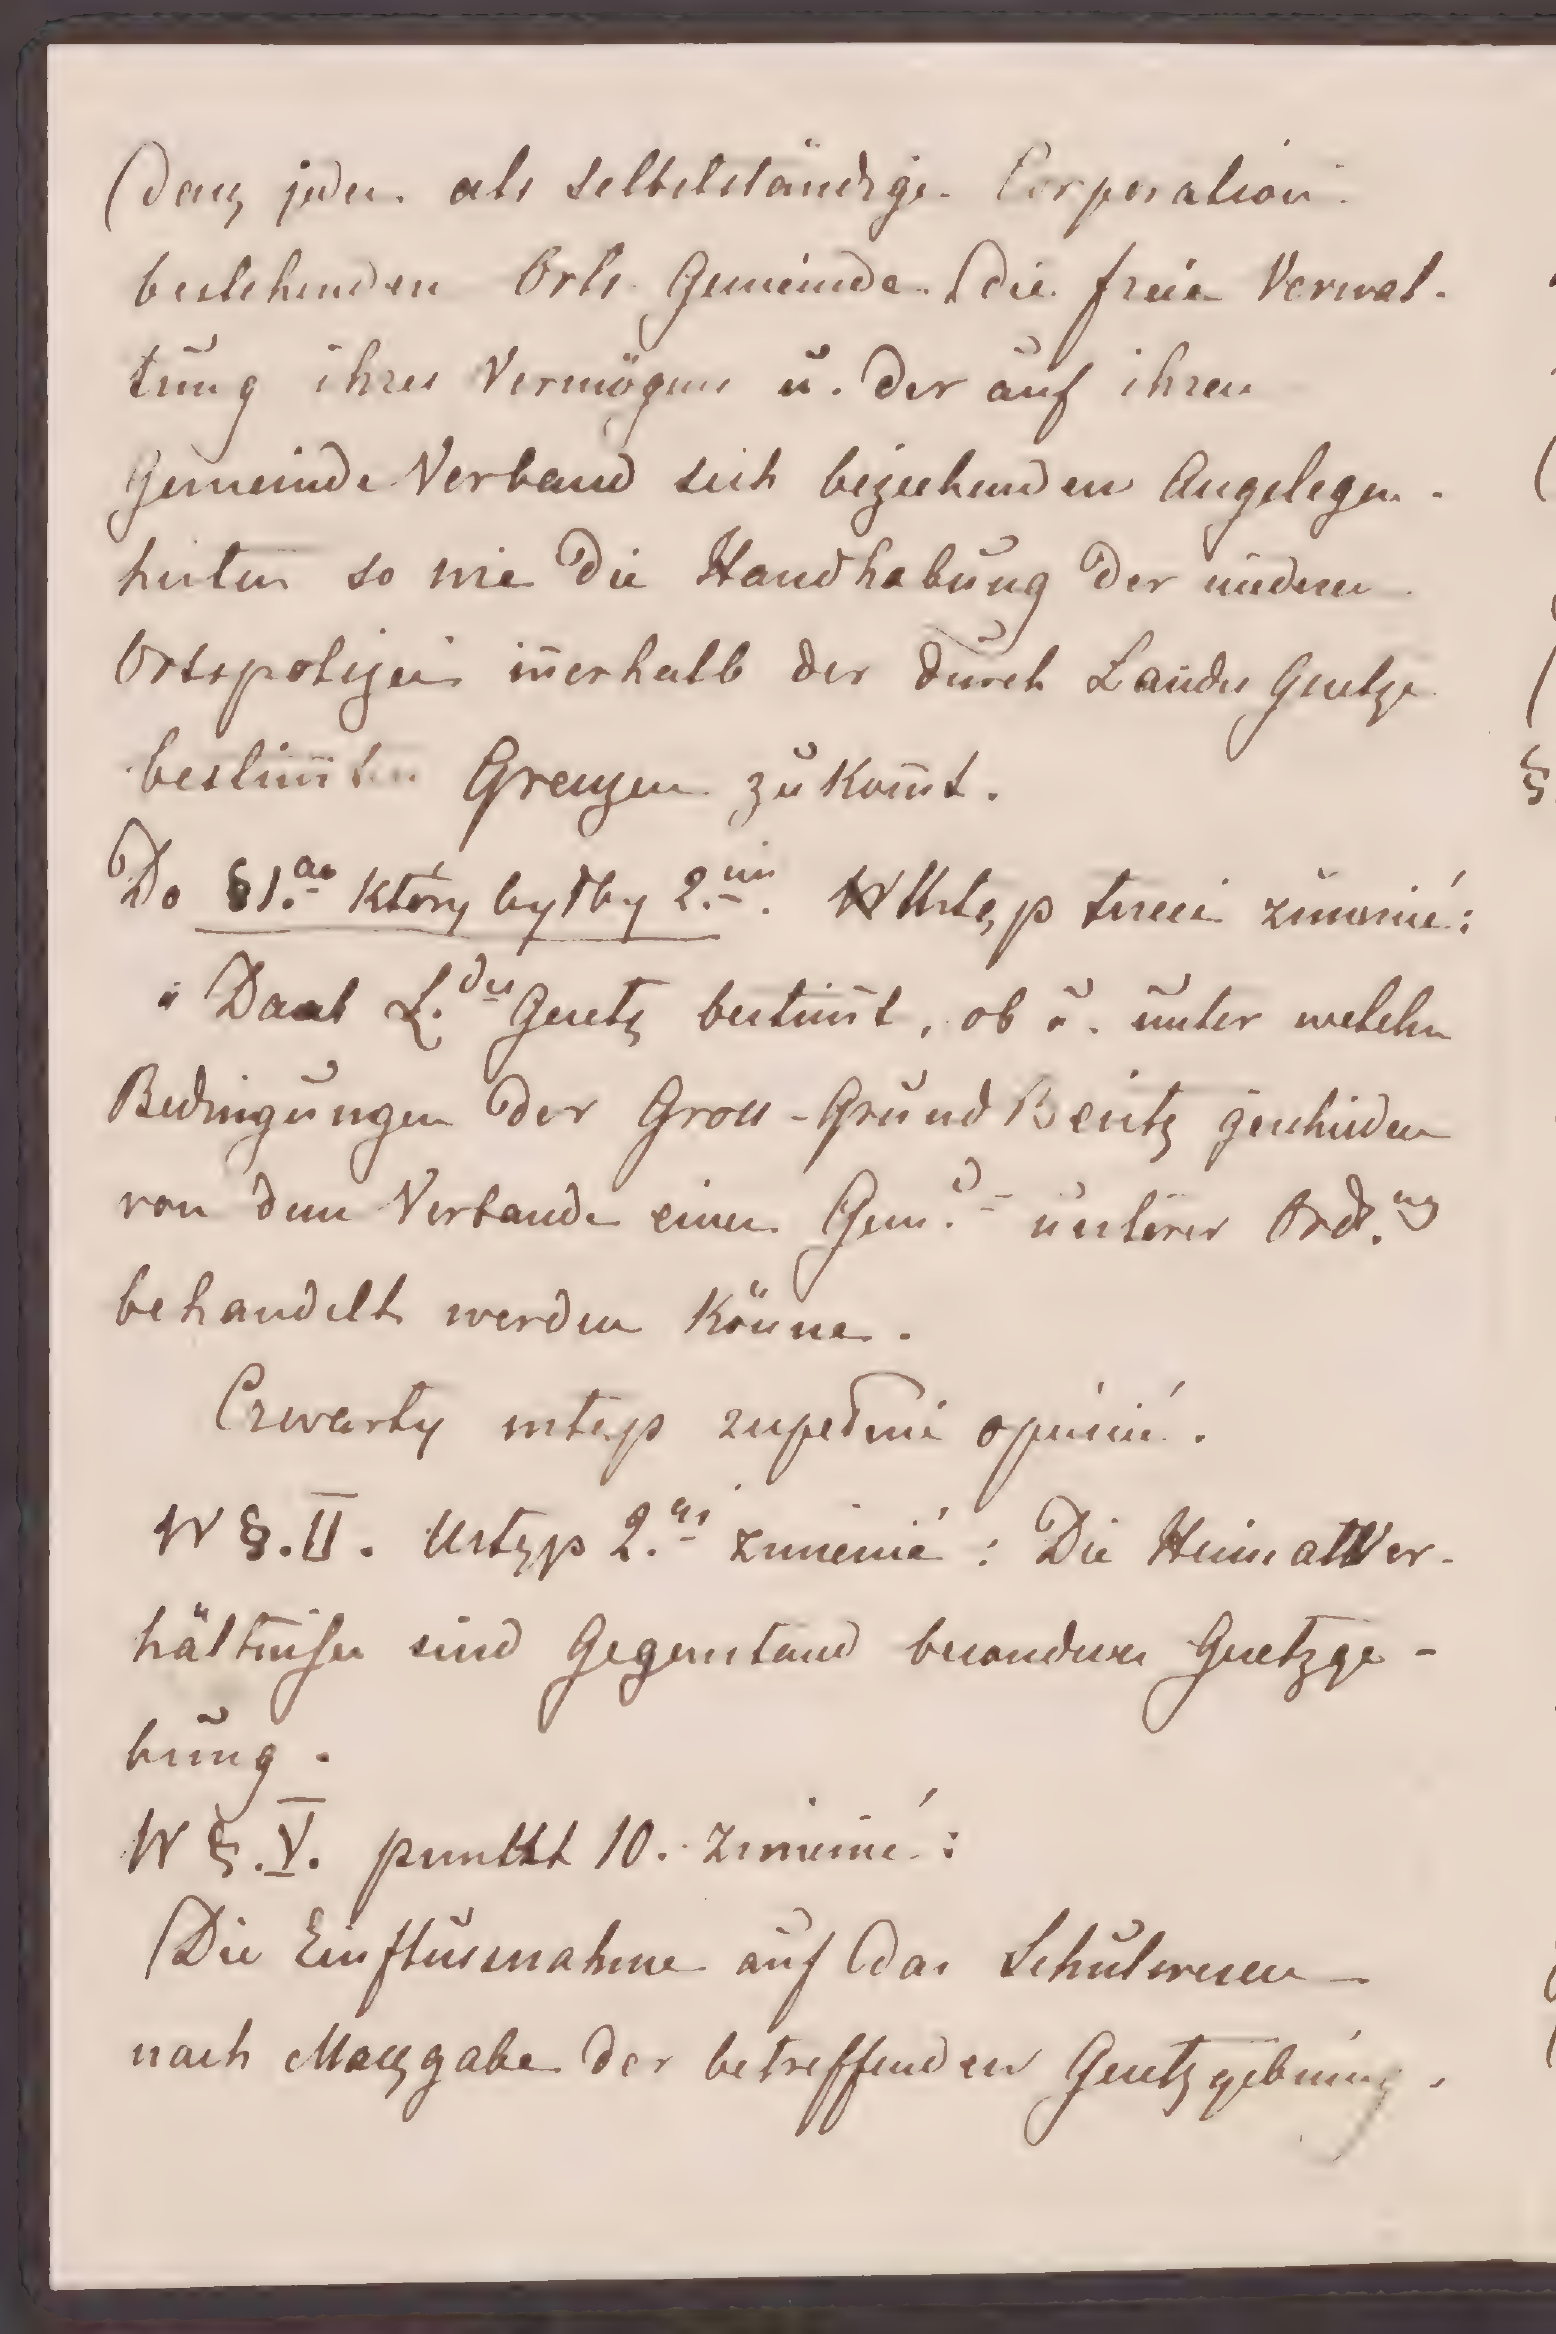 Dasz jeder als selbstständige Corporation
bestehenden Orts Gemeinde die freie Verwal-
tung ihres Vermögens u. der auf ihren
Gemeinde Verband sich beziehenden Angelegen-
heiten so wie die Handhabung der niederen
Ortspolizei innerhalb der durch Landes Gesetze
bestim̅ten Grenzen zukom̅t.
Do §1.go który byłby 2.im. Ustęp trzeci zmienić:
" Daat L.des Gesetz bestim̅t, ob u. unter welchen
Bedingungen der Gross-Grund Besitz geschieden
von dem Verbande einer Gem.d unterer Ord.ng
behandelt werden könne.
Czwarty ustęp zupełnie opuścić.
W §.II. Ustęp 2.gi zmienić: Die Heimat Ver-
hältnisse sind Gegenstand besonderer Gesetzge-
bung.
W §.V. punkt 10. zmienić:
Die Einflussnahme auf das Schulwesen
nach Maszgabe der betreffenden Gesetzgebung.